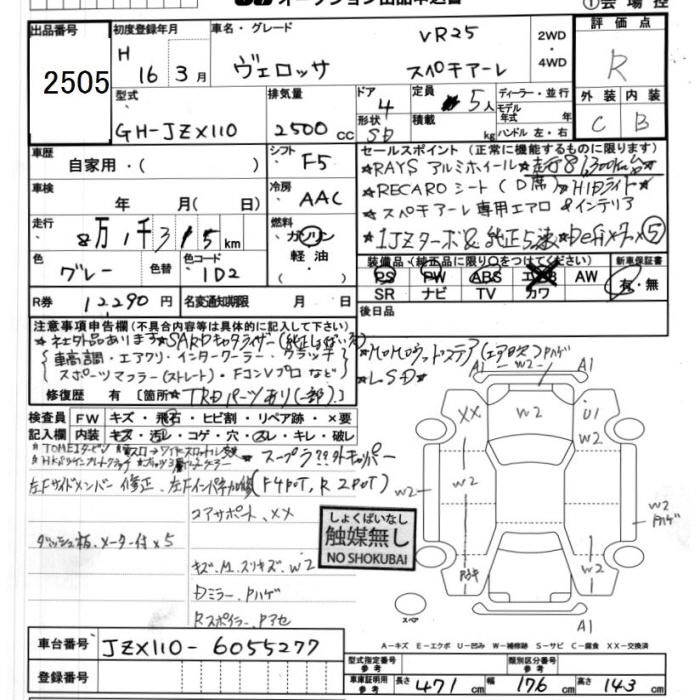 出品番号
2505
初度登録年月
H 16年 3月
車名・グレード
ヴェロッサ
VR25
スペチアーレ
2WD
・
4WD
評価点
R
外装 内装
C B
型式
GH-JZX110
排気量
2500 cc
ドア
4
形状
SD
定員
5人
積載
kg
ディーラー・並行
モデル年式 年
ハンドル 左・右
車歴
自家用・( )
シフト
F5
セールスポイント(正常に機能するものに限ります)
★RAYS アルミホイール★走行81,300km台★
★RECAROシート(D席)★HIDライト★
★スペチアーレ専用エアロ&インテリア
★1JZターボ&純正5速★Defiメーター×5
車検
年 月(日)
冷房
AAC
走行
8万1千315km
燃料
ガソリン
軽油
・( )
色
グレー
色替
色コード
1D2
装備品(純正品に限り○をつけてください)
PS PW ABS エアB AW
SR ナビ TV カワ
新車保証書
有・無
R券
12,290円
名変通知期限
月 日
後日品
注意事項申告欄(不具合内容等は具体的に記入して下さい)
車高調・エアクリ・インタークーラー・クラッチ
スポーツマフラー(ストレート)・FコンVプロなど
★LSD★
修復歴 有 [箇所★TRDパーツあり(一部)]
検査員記入欄
FW キズ・飛石・ヒビ割・リペア跡・×要
内装 キズ・汚レ・コゲ・穴・スレ・キレ・破レ
★スープラ??外キャリパー
(F4POT, R2POT)
左Fサイドメンバー修正、左Fインパネ
コアサポート、XX
ダッシュ板、メーター付×5
キズ、M、スリキズ、W2
Dミラー、Pハゲ
Rスポイラー、Pアセ
しょくばいなし
触媒無し
NO SHOKUBAI
A1 W2 A1
XX W2 U1
W2 W2
W2 W2
Pハゲ
W2
A1
スペア
A－キズ E－エクボ U－凹み W－補修跡 S－サビ C－腐食 XX－交換済
車台番号
JZX110-6055277
登録番号
型式指定番号
参考
類別区分番号
参考
車庫証明用
参考
長さ 471 cm 幅 176 cm 高さ 143 cm